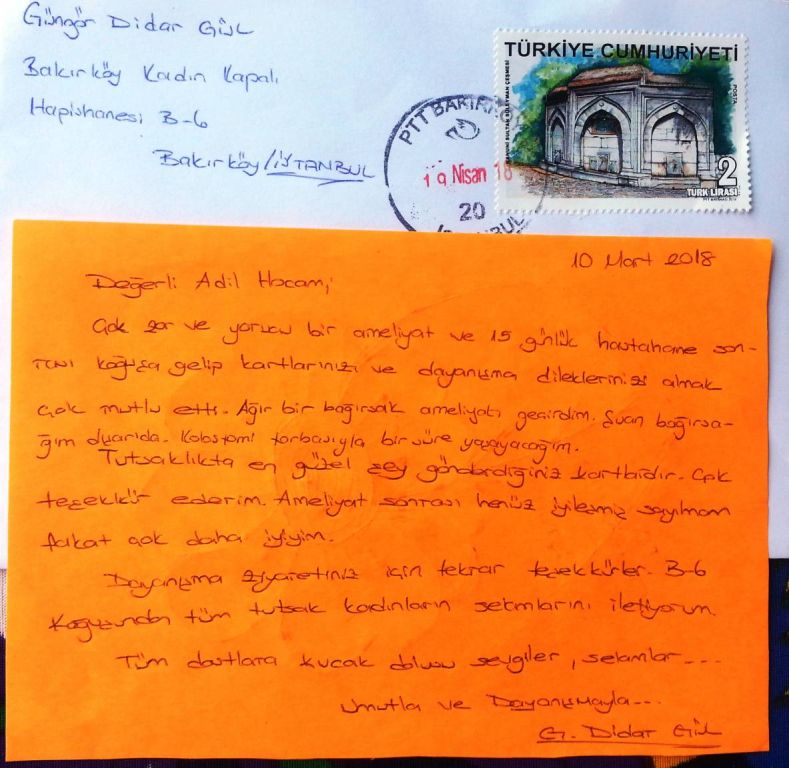 Güngör Didar Gül
Bakırköy Kadın Kapalı
Hapishanesi B-6
Bakırköy/İSTANBUL
PTT BAKIRKÖY
19 Nisan 18
20
İSTANBUL
TÜRKİYE CUMHURİYETİ
KANUNİ SULTAN SÜLEYMAN ÇEŞMESİ
POSTA
2
TÜRK LİRASI
10 Mart 2018
Değerli Adil Hocam;
Çok zor ve yorucu bir ameliyat ve 15 günlük hastahane son-
rası koğuşa gelip kartlarınızı ve dayanışma dileklerinizi almak
çok mutlu etti. Ağır bir bağırsak ameliyatı geçirdim. Şuan bağırsa-
ğım dışarıda. Kolostomi torbasıyla bir süre yaşayacağım.
Tutsaklıkta en güzel şey gönderdiğiniz kartlardır. Çok
teşekkür ederim. Ameliyat sonrası henüz iyileşmiş sayılmam
fakat çok daha iyiyim.
Dayanışma ziyaretiniz için tekrar teşekkürler. B-6
Koğuşundan tüm tutsak kadınların selamlarını iletiyorum.
Tüm dostlara kucak dolusu sevgiler, selamlar...
Umutla ve Dayanışmayla...
G. Didar Gül